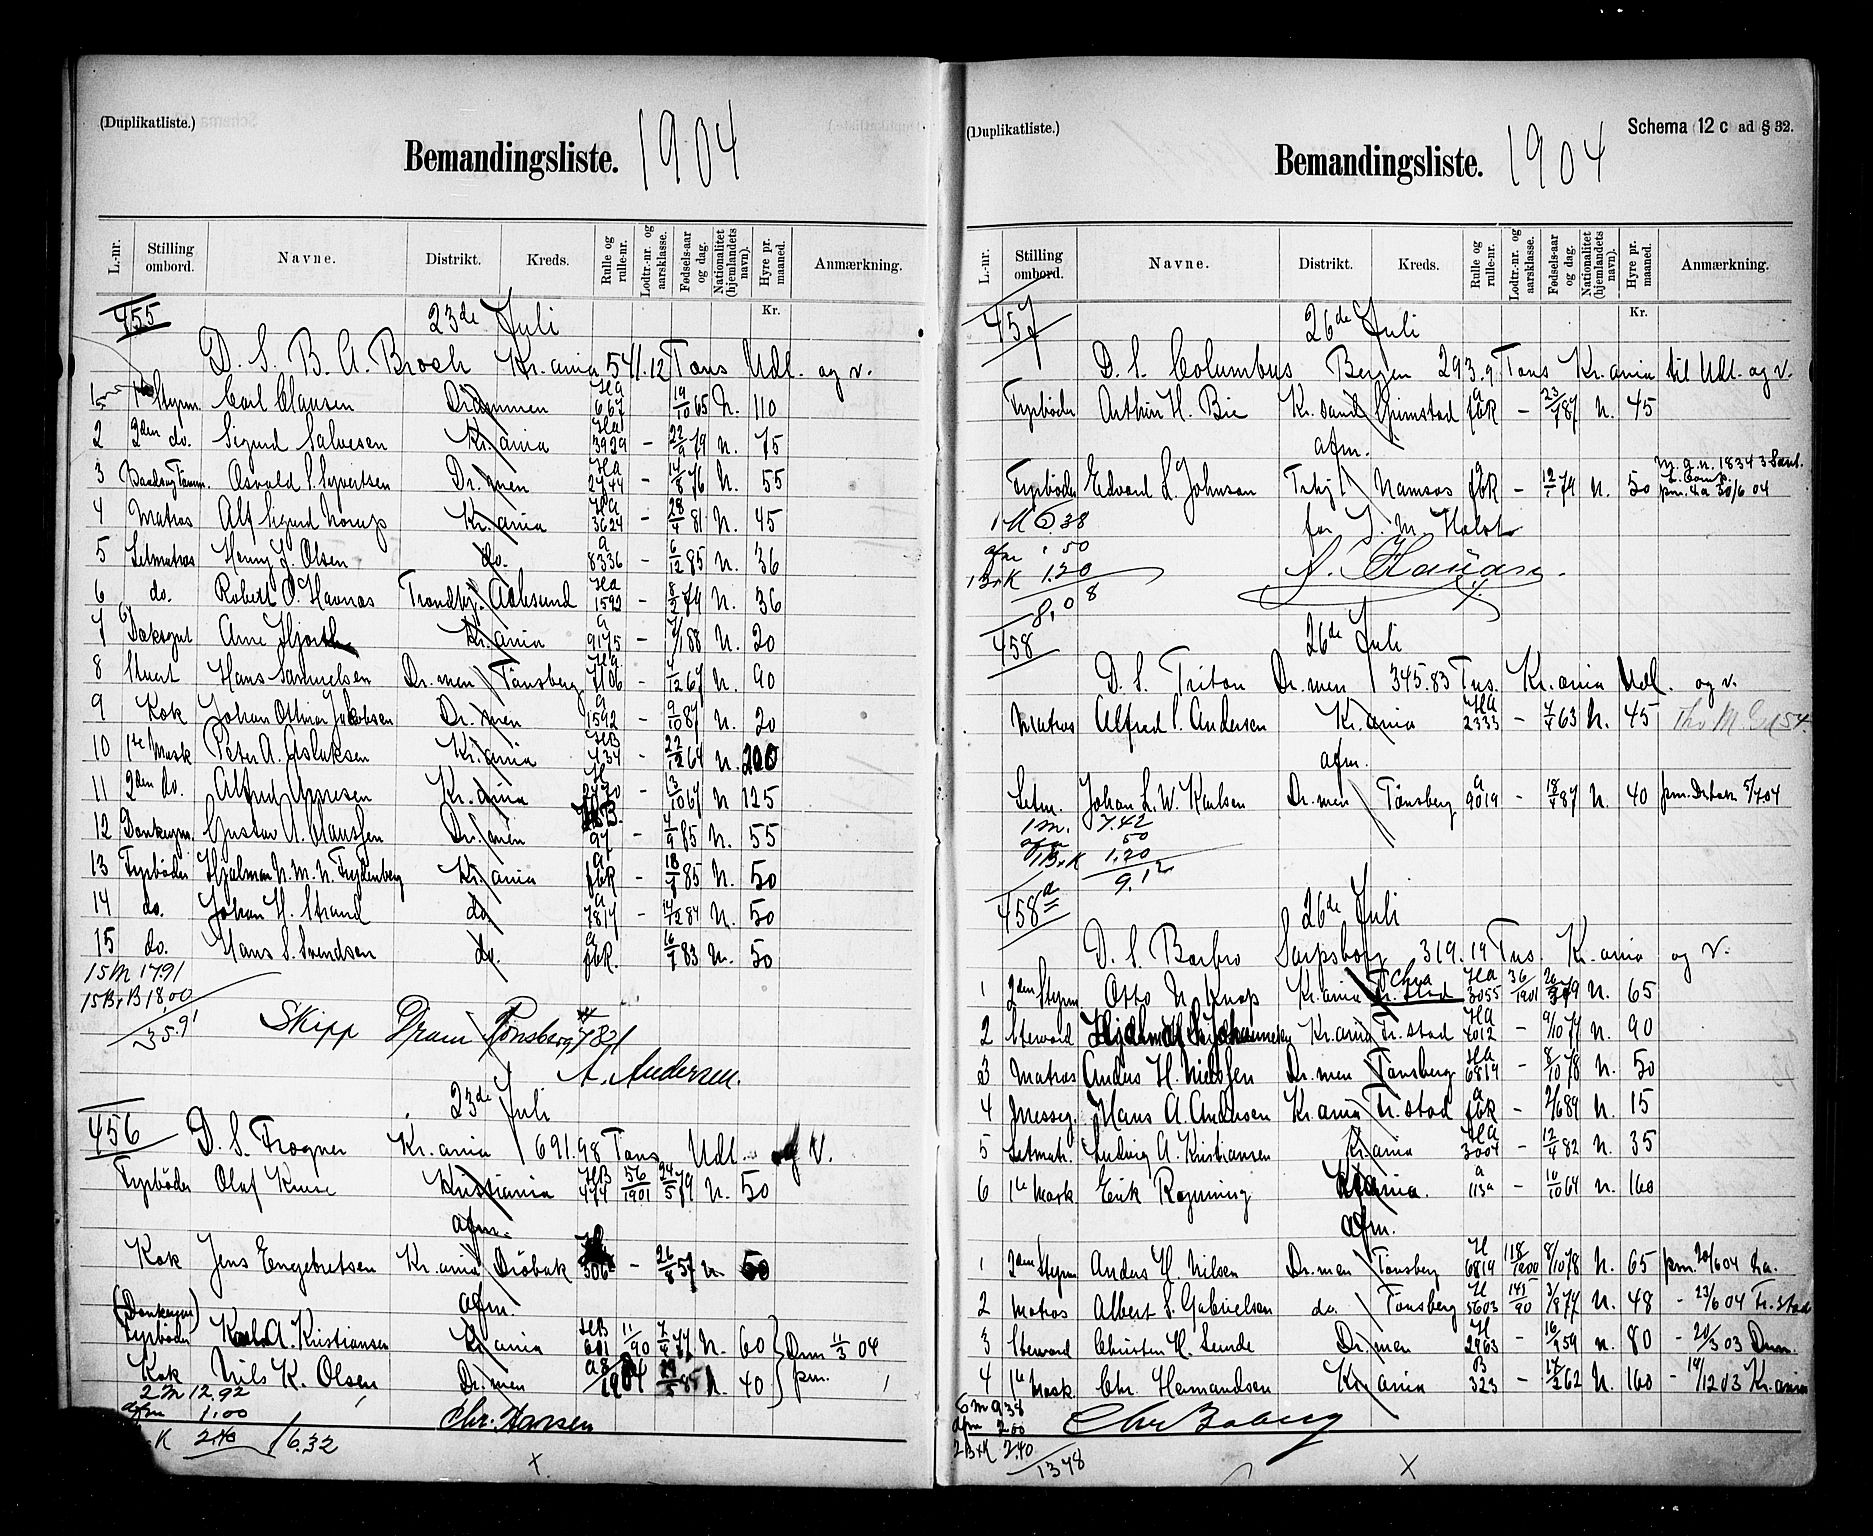 (Duplikatliste.)
Bemandingsliste. 1904
L.-nr. Stilling ombord. Navne. Distrikt. Kreds. Rulle og rulle-nr. Lodtr.-nr. og aarsklasse. Fødsels-aar og dag. Nationalitet (hjemlandets navn). Hyre pr. maaned. Anmærkning.
Kr.
455 23de Juli
D. S. B. A. Broch Kr.ania 541.12 Tons Udl. og v.
1 1ste Styrm. Carl Clausen Drammen Ha 667 19/10 65 N. 110
2 2den do. Sigurd Salvesen Kr.ania Ha 3929 - 22/9 79 N. 75
3 Osvald S. Syvertsen Dr.men Ha 2744 - 14/8 76 N. 55
4 Matros Alf Sigurd Norup Kr.ania Ha 3624 - 28/4 81 N. 45
5 Letmatros Henry J. Olsen do. a 8336 - 6/12 85 N. 36
6 do. Robert O. Havnas Trondhj. Aalesund Ha 1592 - 8/2 79 N. 36
7 Dæksgut Arne Hjorth Kr.ania a 9175 - /1 88 N. 20
8 Stuert Hans Samuelsen Dr.men Tønsberg Ha 7106 - /12 67 N. 90
9 Kok Johan Ottinar Jakobsen Dr.men a 1592 - 9/10 87 N. 20
10 1ste Mask Peter A. Aslaksen Kr.ania HB 434 - 22/2 64 N. 200
11 2den do. Alfred Arnesen Kr.ania - 13/10 67 N 125
12 Donkeym. Gustav A. Clausen Dr.men 97 - /9 85 N. 55
13 Fyrbøder Hjalmar N. M. N. Frydenberg Kr.ania a fbk - 18/8 85 N. 50
14 do. Johan H. Strand do. a 7817 - 84 N. 50
15 do. Hans S. Svendsen do. a fbk. 16/7 83 N. 50
15 M 17.91
15 B+B 18,00
35.91
Skipp Dram Tønsberg 7821
A. Andersen.
23de Juli
456 D. S. Frogner Kr.ania 691.98 Tons Udl. og v.
Fyrbøder Olaf Kristiania HB 474 56/1901 24/5 79 N. 50
afm.
Kok Jens Engebretsen Kr.ania Drøbak 306 - 26/8 57 N. 50
afm.
(Donkeym)
Fyrbøder Karl A. Kristiansen Kr.ania HB 601 11/90 77 N. 60 Drm 11/3 04
Kok Nils K. Olsen Dr.men 85 N. 40 pm.
2 M 12.92
afm 1.00
K 2.40 16.32
Chr. Hansen
x
(Duplikatliste.) Schema 12 c ad § 32.
Bemandingsliste. 1904
L.-nr. Stilling ombord. Navne. Distrikt. Kreds. Rulle og rulle-nr. Lodtr.-nr. og aarsklasse. Fødsels-aar og dag. Nationalitet (hjemlandets navn). Hyre pr. maaned. Anmærkning.
Kr.
457 26de Juli
D. S. Columbus Bergen 293.9 Tons Kr.ania til Udl. og v.
Fyrbøder Arthur H. Bie Kr.sand Grimstad a fbk - 23/7 87 N. 45
afm.
Fyrbøder Edvard L. Johnsen Trhj. Namsos a fbk - 12/ 79 N. 50 pm. 30/6 04
1 M 6.38 for J. M. Holst
afm 50
1 B+K 1.20 A. Hansen.
8.08
458 26de Juli
D. S. Triton Dr.men 345.83 Tns. Kr.ania Udl. og v.
Matros Alfred S. Andersen Kr.ania Ha 2333 - /7 63 N. 45
afm.
Letm. Johan L. W. Karlsen Dr.men Tønsberg a 9019 - 18/7 87 N. 40 pm. 5/7 04
1 M. 7.42
afm 50
1 B+K 1.20
9.12
458a 26de Juli
D. S. Barbro Sarpsborg 319.19 Tns. Kr.ania og v.
1 2den Styrm Otto N. Knap Kr.ania Fr.stad Chra Ha 3055 36/1901 79 N. 65
2 Steward Hjalmar Johannesen Kr.ania Fr.stad Ha 4012 - 9/10 77 N. 90
3 Matros Anders H. Nielsen Dr.men Tønsberg Ha 6819 - 8/10 78 N. 50
4 Messeg. Hans A. Andersen Kr.ania Fr.stad a fbk - 2/6 89 N. 15
5 Letmatr. Ludvig A. Kristiansen Kr.ania Ha 3004 - 12/4 82 N. 35
6 1ste Mask. Erik Rogning Kr.ania. a 113a - 10/10 64 N. 160
afm.
1 2den Styrm Anders H. Nilsen Dr.men Tønsberg H 6819 118/1900 8/10 78 N. 65 pm. 20/6 04 Kra.
2 Matros Albert S. Gabrielsen do. Tønsberg H 5603 145/90 3/8 77 N. 48 - 23/6 04 Fr.stad
3 Steward Christen H. Sunde Dr.men H 2963 - 16/9 59 N. 80 - 20/3 03 Drm.
4 1ste Mask. Chr. Hermandsen Kr.ania B 323 - 17/2 62 N. 160 - 19/12 03 Kr.ania
6 M 9.38
afm 2.00
2 B+K 2.40
13.78
x